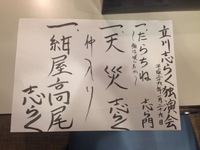 立川志らく独演会
一、だらちね 志ら門
一、天災 志らく
仲入り
一、紺屋高尾 志らく